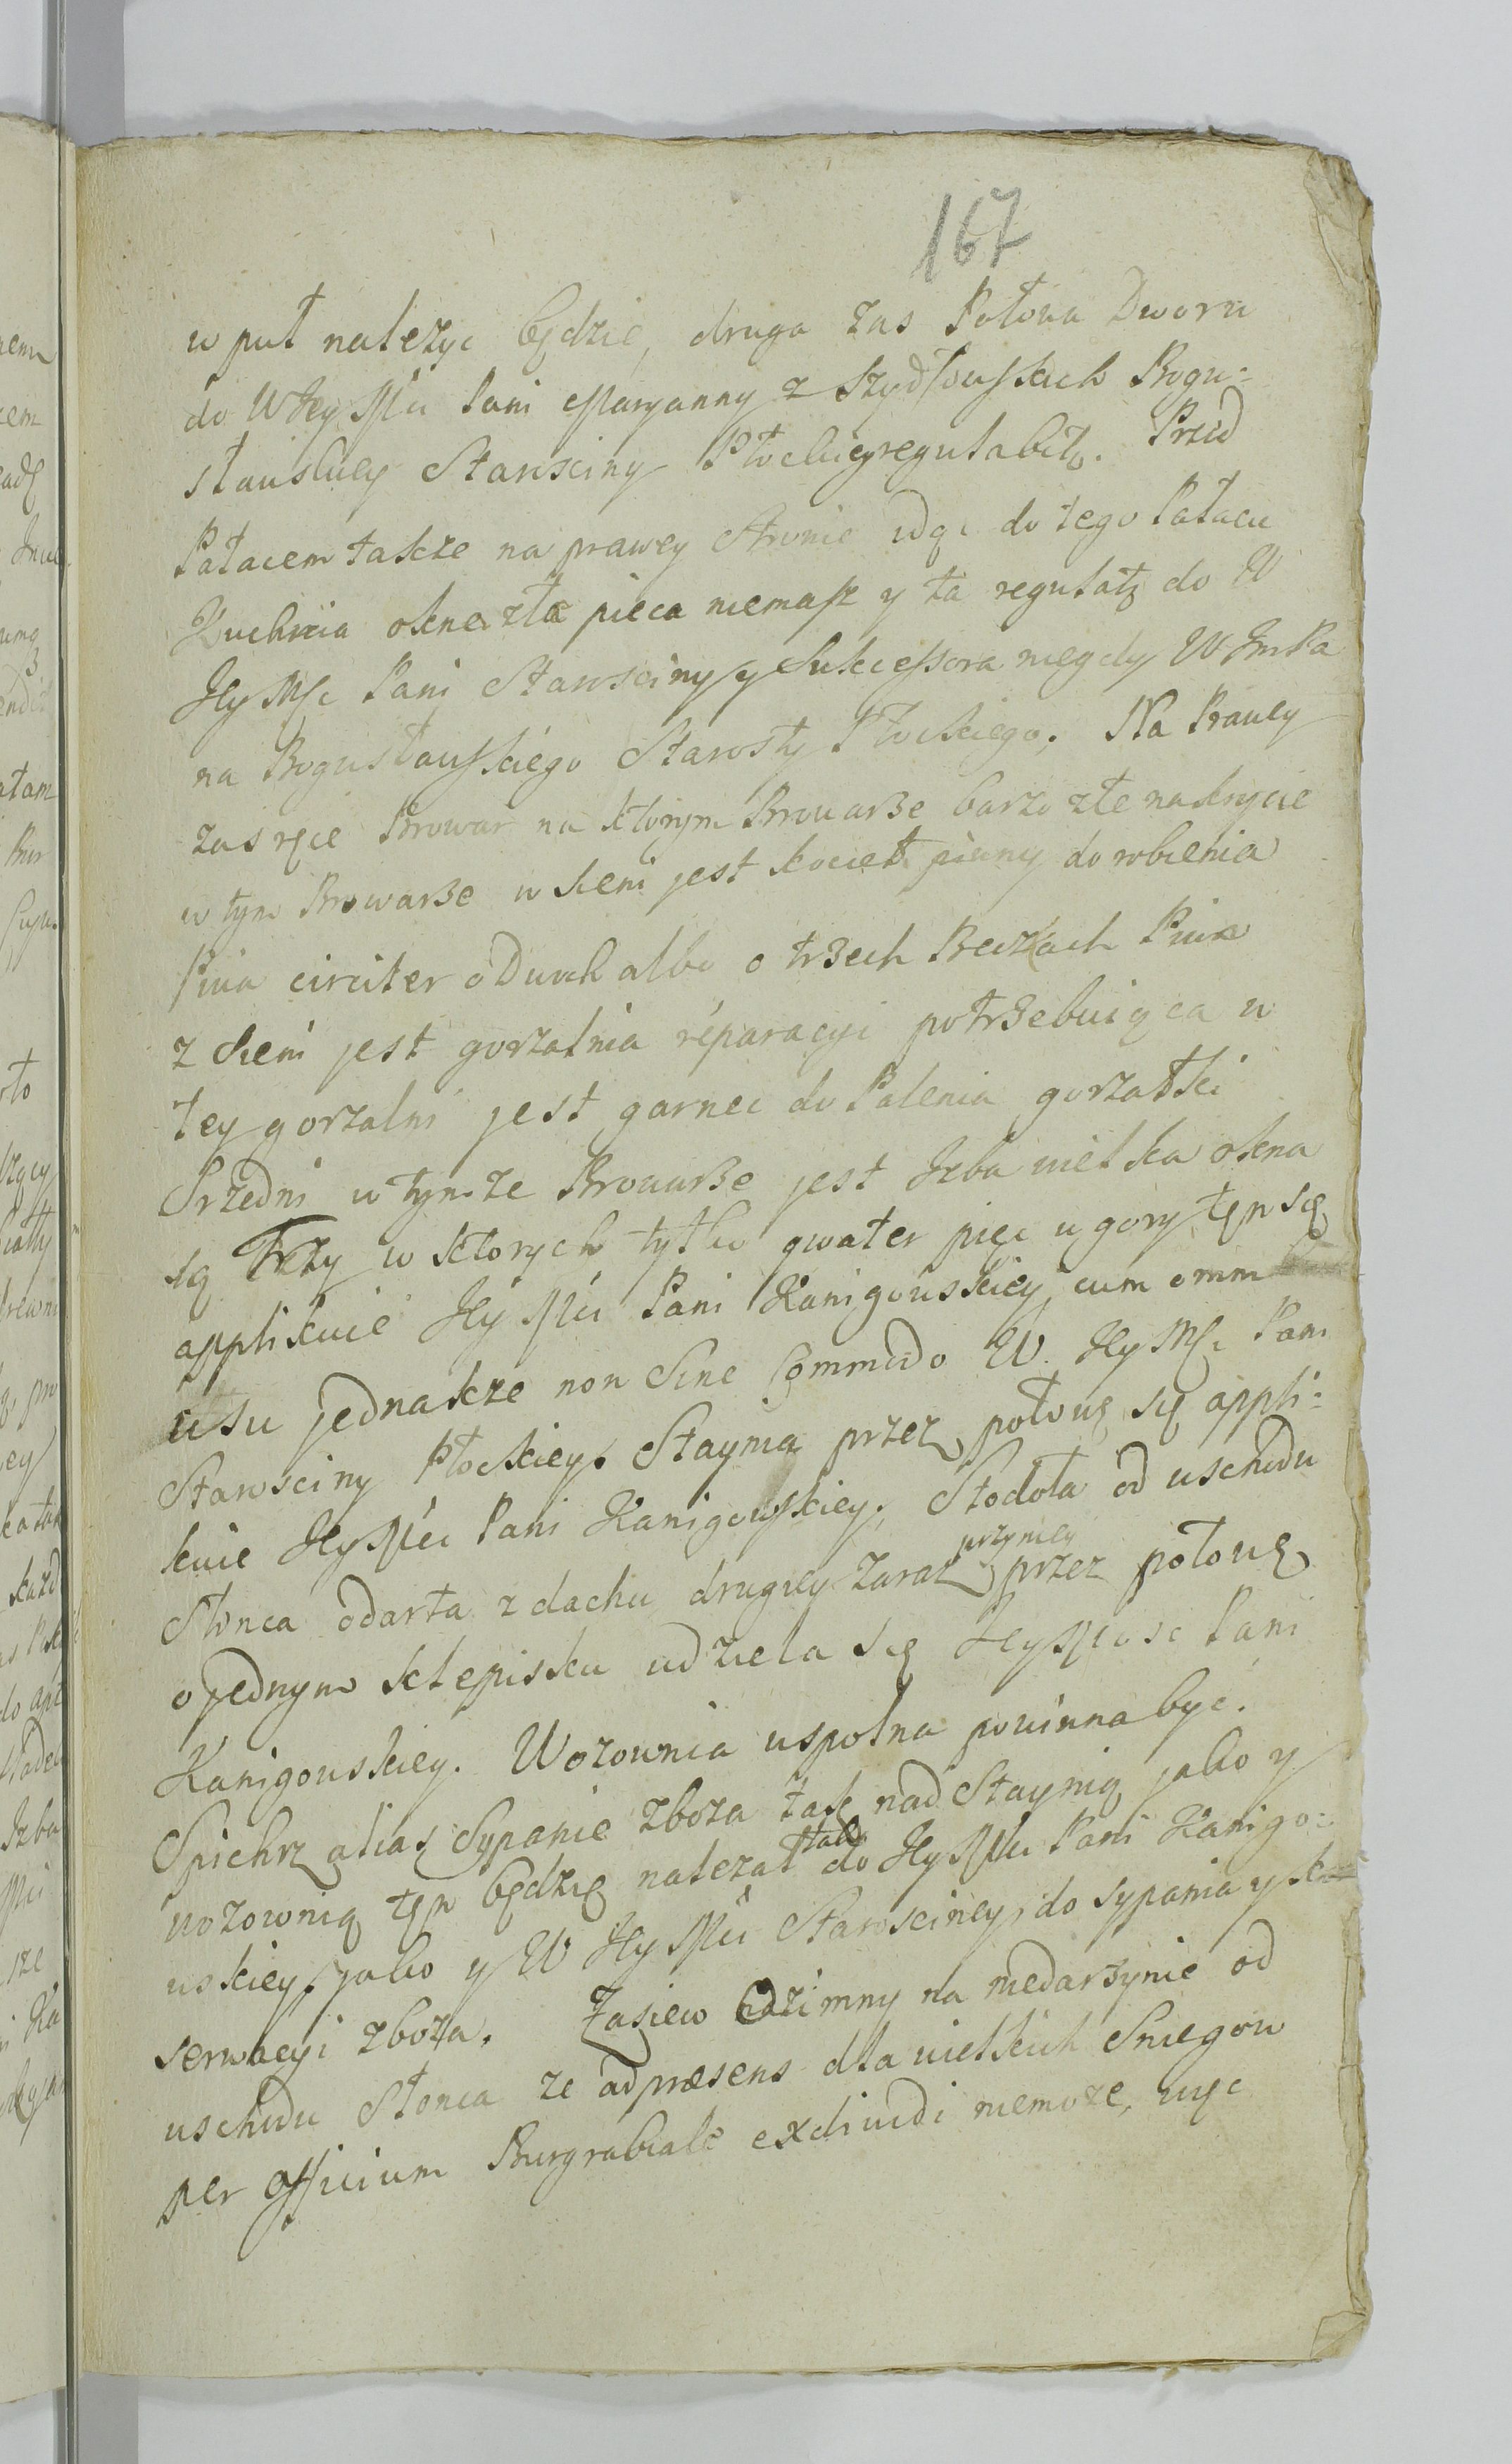 167
w puł należyc będzie, druga zas Połowa Dworu
do WJey Mci Pani Maryanny z Szydłowskich Bogu-
sławskiey Starosciny Płockiey regulabit. Przed
Pałacem także na prawey stronie idąc do tego Pałacu
Kuchnia okna zła pieca niemasz y ta regulatą do W
Jey Mci Pani Starosciny y Sukcessora niegdy W JmPa
na Bogusławskiego Starosty Płockiego. Na Prawey
zas ręce Browar na którym Browarze barzo złe nakrycie
w tym Browarze w Sieni jest kocieł piwny do robienia
Piwa circiter o Dwoch albo o trzech Beczkach Piwa
z Sieni jest gorzalnia reparacyi potrzebuiąca w
tey gorzalni jest garnec do Palenia gorzałki
Srzedni w tymze Browarze jest Izba wielka okna
są Trzy w ktorych tylko qwater pięc u gory tęn się
applikuie Jey Mci Pani Kanigowskiey cum omni
usu jednakze non Sine Commodo W. Jey Mci Pani
Starosciny Płockiey. Staynia przez połowę się appli-
kuie Jey Mci Pani Kanigowskiey, Stodoła od wschodu
Słonca odarta z dachu drugiey zaraz przyniey przez połowę
o jednym klepisku udziela się Jey Mosc Pani
Kanigowskiey. Wozownia wspolna powinna byc.
Spichrz alias Sypanie zboza tak nad Staynią jako y
wozownią tęn będzię nalezał tak do Jey Mci Pani Kanigo-
wskiey, jako y W Jey Mci Starosciney, do sypania y kon
serwacyi zboza. Zasiew Ozimny na niedarzynie od
wschodu Słonca ze ad præsens dla wielkich Sniegow
per officium Burgrabiale exdividi niemoze, więc